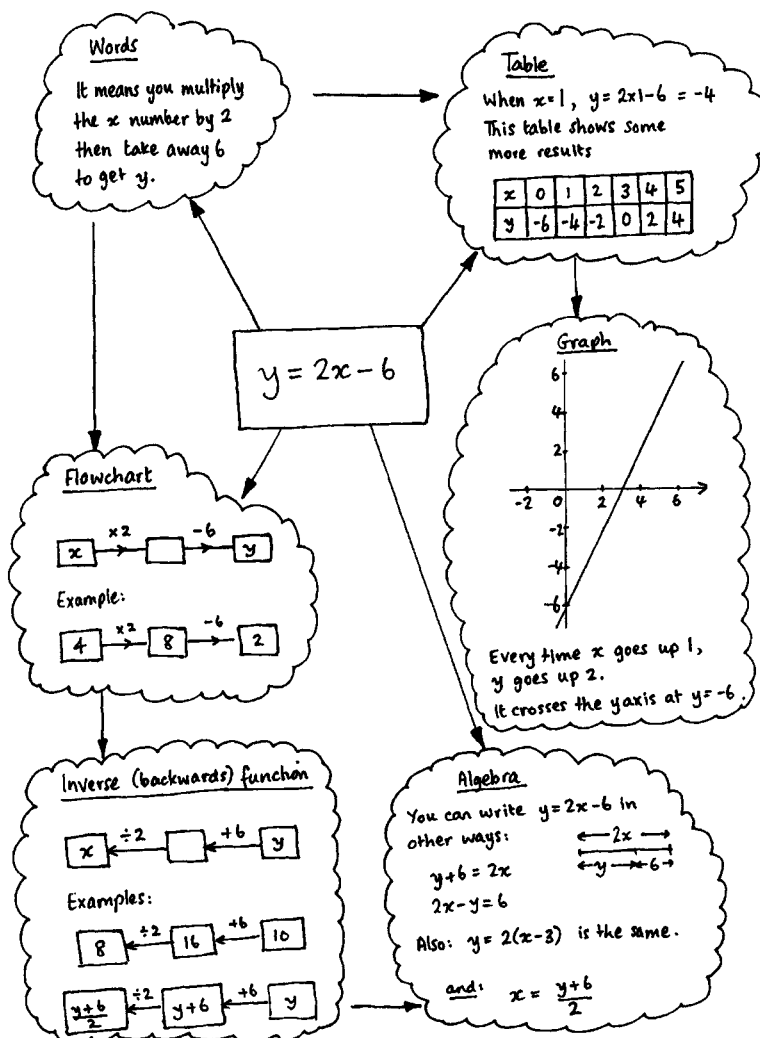 Words
It means you multiply
the x number by 2
then take away 6
to get y.
Table
When x=1, y=2x1-6 = -4
This table shows some
more results
x 0 1 2 3 4 5
y -6 -4 -2 0 2 4
y = 2x - 6
Graph
6
4
2
-2 0 2 4 6
-2
-4
-6
Every time x goes up 1,
y goes up 2.
It crosses the y axis at y=-6.
Flowchart
×2 -6
x y
Example:
×2 -6
4 8 2
Inverse (backwards) function
÷2 +6
x y
Examples:
÷2 +6
8 16 10
÷2 +6
y+6/2 y+6 y
Algebra
You can write y=2x-6 in
other ways:
2x
y 6
y+6 = 2x
2x-y = 6
Also: y = 2(x-3) is the same.
and: x = y+6/2